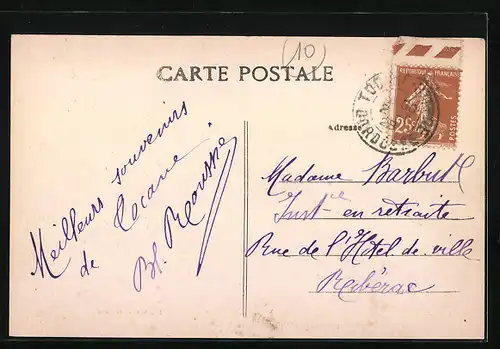 (10)
CARTE POSTALE
REPUBLIQUE FRANÇAISE
25c
POSTES
TOC
DORDOGNE
Adresse
Meilleurs souvenirs
de Tocane
Bl.
Madame Barbut
Inst<sup>ce</sup> en retraite
Rue de l'Hôtel de ville
Ribérac